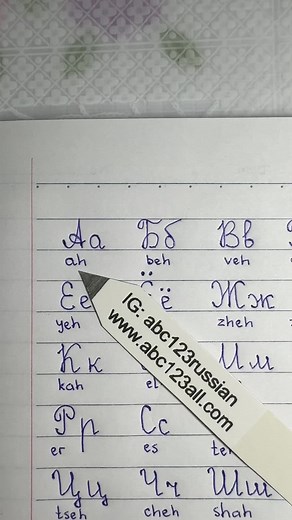 Аа Бб Вв
ah beh veh
Ее Ёё Жж
yeh zheh
Кк Мм
kah el
Рр Сс
er es
Цц Чч Шш
tseh cheh shah
IG: abc123russian
www.abc123all.com